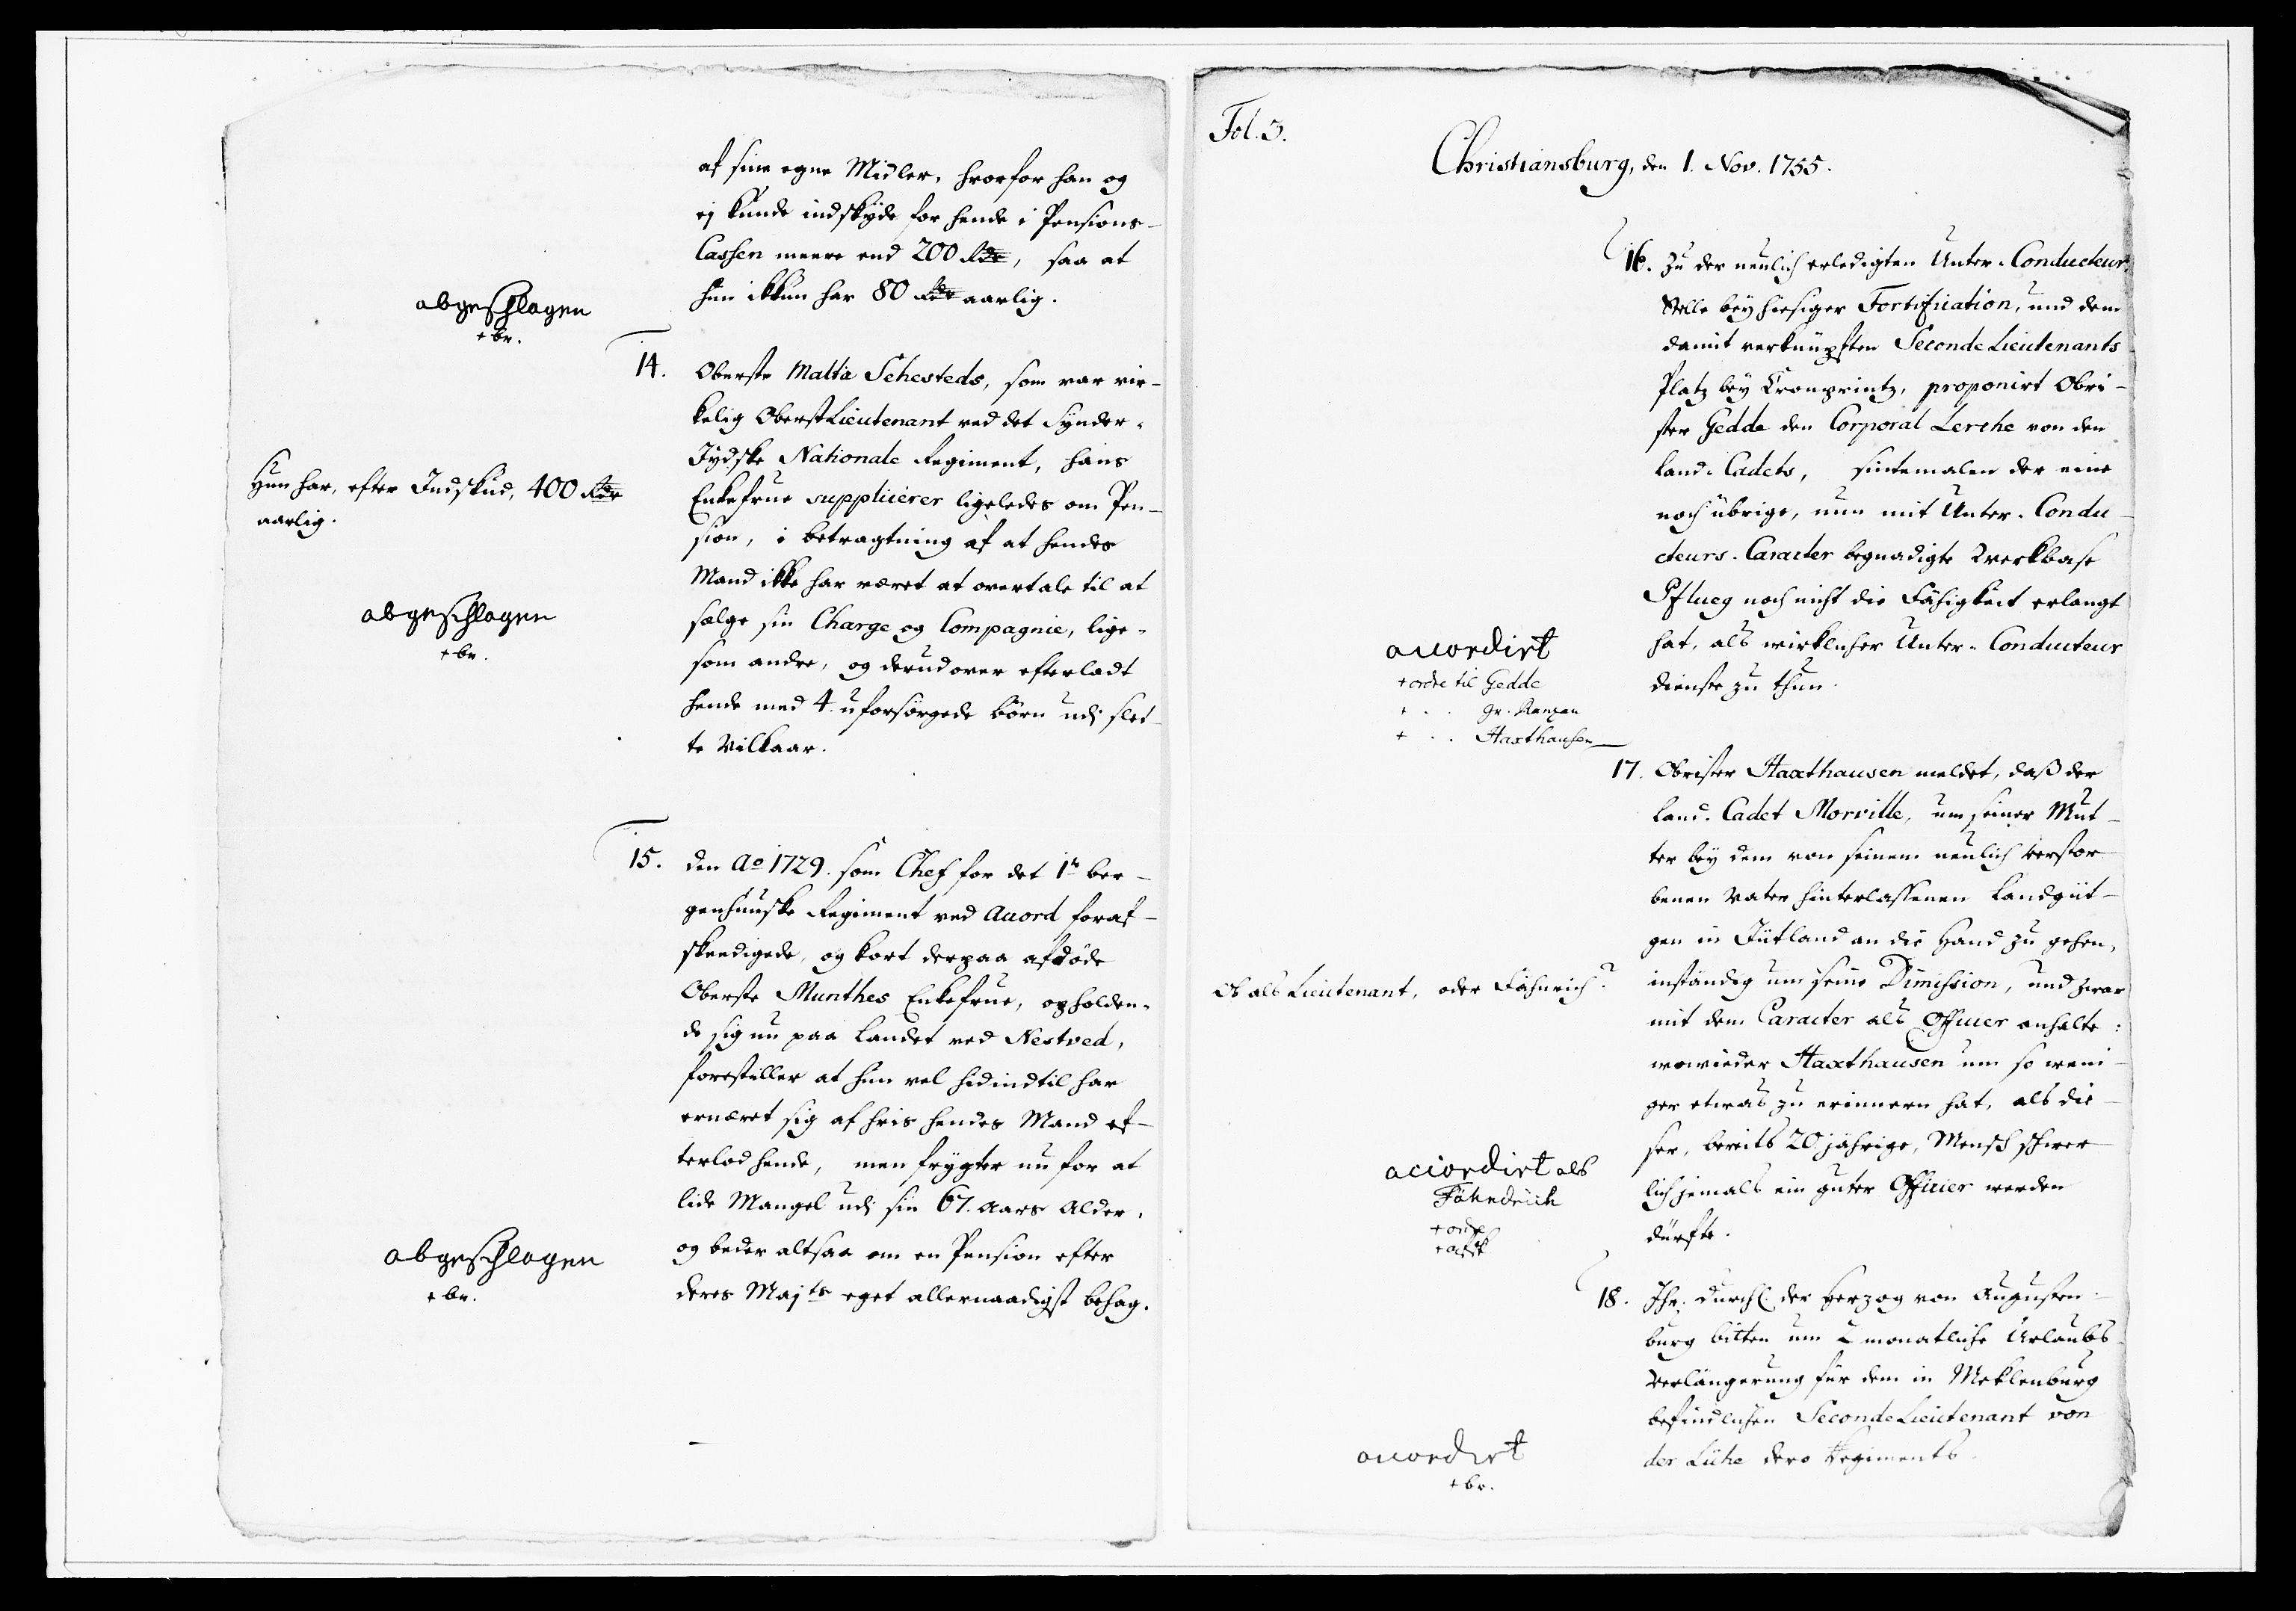 af sine egne Midler, hvorfor han og
ej kunde indskyde for hende i Pensions-
Cassen meere end 200 Rdr, saa at
hun ikkun har 80 Rdr aarlig.
abgeschlagen
+ br.
14. Oberste Malta Sehesteds, som var vir-
kelig Oberst Lieutenant ved det Synder-
Jydske Nationale Regiment, hans
Enkefrue suppliicerer ligeledes om Pen-
sion, i betragtning af at hendes
Mand ikke har været at overtale til at
sælge sin Charge og Compagnie, lige-
som andre, og derudover efterladt
hende med 4 uforsørgede börn udj slet-
te Vilkaar.
Hun har, efter Indskud, 400 Rdr
aarlig.
abgeschlagen
+ br.
15. den Ao 1729. som Chef for det 1te ber-
genhuuske Regiment ved Accord foraf-
skeedigede, og kort derpaa afdöde
Oberste Munthes Enkefrue, opholden-
de sig nu paa Landet ved Nestved,
forestiller at hun vel hidindtil har
ernæret sig af hvis hendes Mand ef-
terlod hende, men frygter nu for at
lide Mangel udj sin 67. Aars Alder,
og beder altsaa om en Pension efter
deres Majts eget allernaadigst behag.
abgeschlagen
+ br.
Fol. 3.
Christiansburg, den 1. Nov. 1755.
16. Zu der neulich erledigten Unter-Conducteur
Stelle bey hiesiger Fortification, und dem
damit verknüpften Seconde Lieutenants
Platz bey Cronprintz, proponirt Obri-
ster Gedde den Corporal Lerche von den
Land-Cadets, sintemalen der eine
noch übrige, nun mit Unter-Condu-
cteurs-Caracter begnadigte Werkbase
Pflueg noch nicht die Fähigkeit erlangt
hat, als wirklicher Unter-Conducteur
dienste zu thun.
accordirt
+ ordre til Gedde
+ . . gr. Ranzau
+ . . Haxthausen
17. Obrister Haxthausen meldet, daß der
Land-Cadet Morville, um seiner Mut-
ter bey dem von seinem neulich verstor-
benen Vater hinterlassenen Landgüt-
gen in Jütland an die Hand zu gehen,
inständig um seine Dimission, und zwar
mit dem Caracter als Officier anhalte:
wowieder Haxthausen um so weni-
ger etwas zu erinnern hat, als die-
ser, bereits 20 jährige, Mensch schwer-
lich jemals ein guter Officier werden
dürfte.
Ob als Lieutenant, oder Fähnrich?
accordirt als
Fähndrich
+ ordr
+ afsk
18. Ihr. Durchl. der Herzog von Augusten-
burg bitten um 2 monatliche Urlaubs-
Verlängerung für dem in Meklenburg
befindlichen Seconde Lieutenant von
der Lühe dero Regiments.
accordirt
+ br.